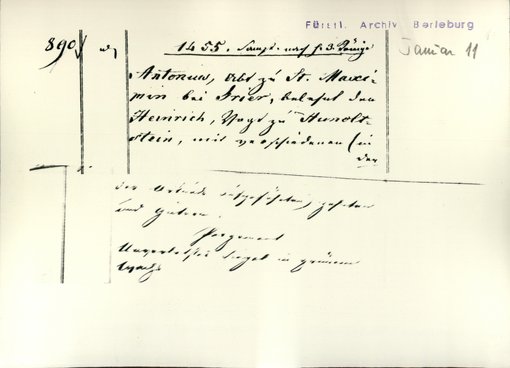 Fürstl. Archiv Berleburg
Januar 11
890
1455. Samst. nach h. 3 Könige
Antonius, Abt zu St. Maxi-
min bei Trier, belehnt den
Heinrich, Vogt zu Hunolt-
stein, mit verschiedenen (in
der
der Urkunde aufgeführten) Zehnten
und Gütern.
Pergament
Unverletztes Siegel in grünem
Wachs